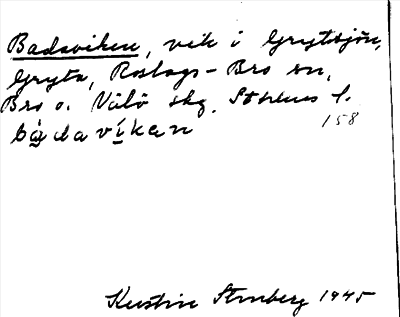 Badaviken, vik i Grytsjön,
Gryta, Roslags-Bro sn,
Bro o. Vätö skg. Sthlms l.
bàdavíkan 158
Kerstin Strnberg 1945